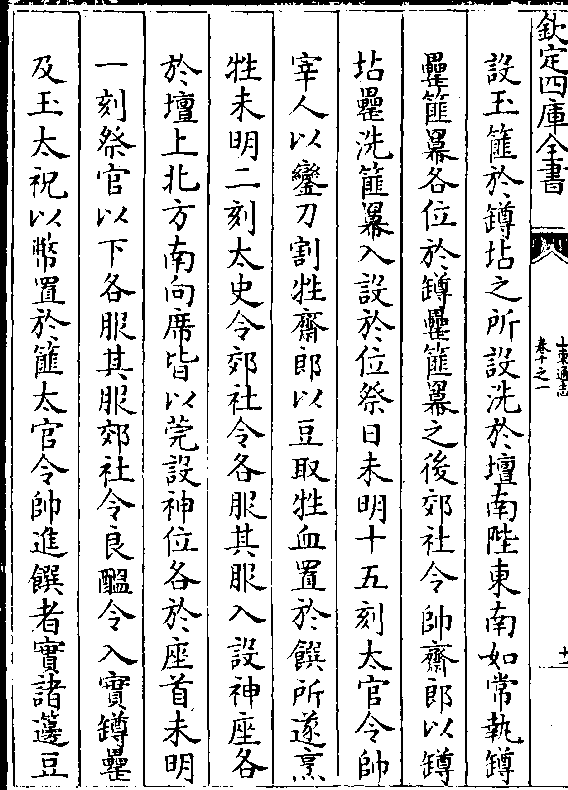 欽定四庫全書
山東通志
卷十之一
十一
設玉篚於罇坫之所設洗於壇南陛東南如常執罇
罍篚羃各位於罇罍篚羃之後郊社令帥齋郎以罇
坫罍洗篚羃入設於位祭日未明十五刻太官令帥
宰人以鑾刀割牲齋郎以豆取牲血置於饌所遂烹
牲未明二刻太史令郊社令各服其服入設神座各
於壇上北方南向席皆以莞設神位各於座首未明
一刻祭官以下各服其服郊社令良醞令入實罇罍
及玉太祝以幣置於篚太官令帥進饌者實諸籩豆